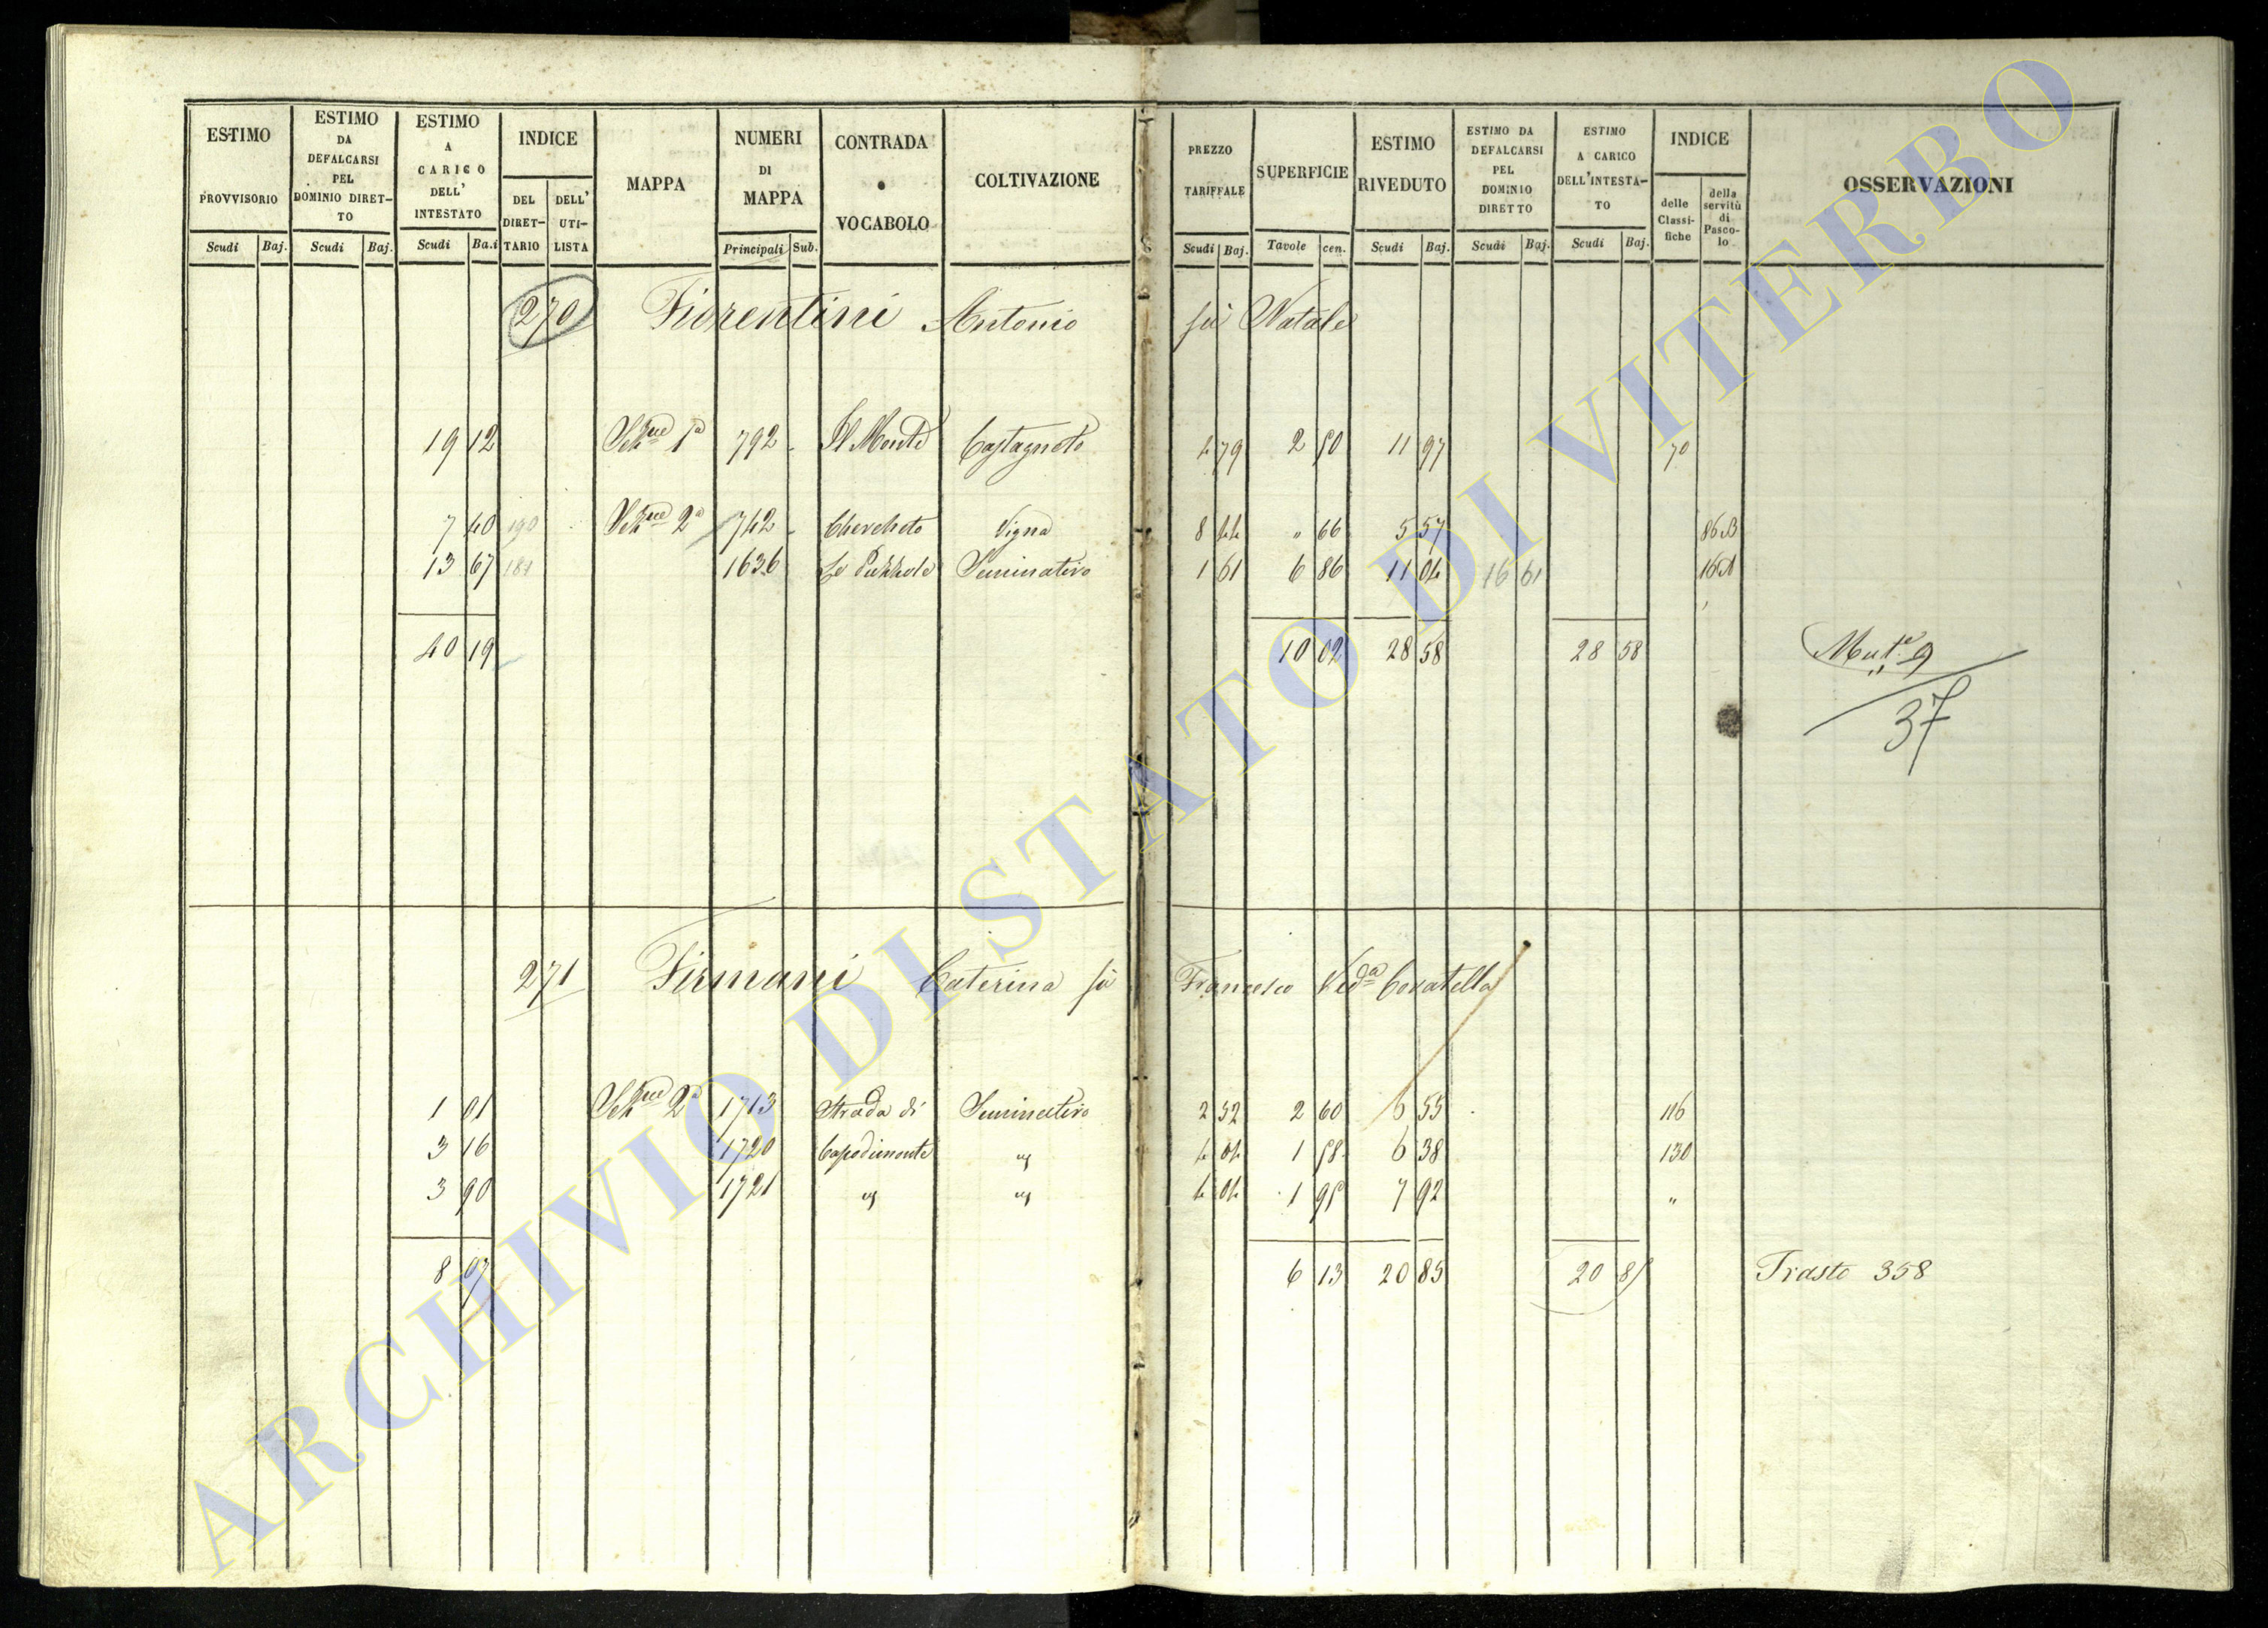 ESTIMO PROVVISORIO Scudi Baj.
ESTIMO DA DEFALCARSI PEL DOMINIO DIRET-TO Scudi Baj.
ESTIMO A CARICO DELL' INTESTATO Scudi Ba.i
INDICE DEL DIRET-TARIO DELL' UTI-LISTA
MAPPA
NUMERI DI MAPPA Principali Sub.
CONTRADA o VOCABOLO
COLTIVAZIONE
PREZZO TARIFFALE Scudi Baj.
SUPERFICIE Tavole cen.
ESTIMO RIVEDUTO Scudi Baj.
ESTIMO DA DEFALCARSI PEL DOMINIO DIRETTO Scudi Baj.
ESTIMO A CARICO DELL'INTESTA-TO Scudi Baj.
INDICE delle Classi-fiche della servitù di Pasco-lo
OSSERVAZIONI
270 Fiorentini Antonio fù Natale
19 12 Sez.ne 1a 792 Il Monte Castagneto 4 79 2 50 11 97 70
7 40 190 Sez.ne 2a 742 Chercheto Vigna 8 44 " 66 5 57 86 B
13 67 184 1636 Le Puzzole Seminativo 1 61 6 86 11 04 16 61 16 A
40 19 10 02 28 58 28 58 Mut.e 9
37
271 Firmani Caterina fù Francesco Ved.a Covatella
1 01 Sez.ne 2a 1713 Strada di Seminativo 2 52 2 60 6 55 116
3 16 1720 Capodimonte " 4 04 1 58 6 38 130
3 90 1721 " " 4 04 1 95 7 92 "
8 07 6 13 20 85 20 85 Trasto 358
ARCHIVIO DI STATO DI VITERBO